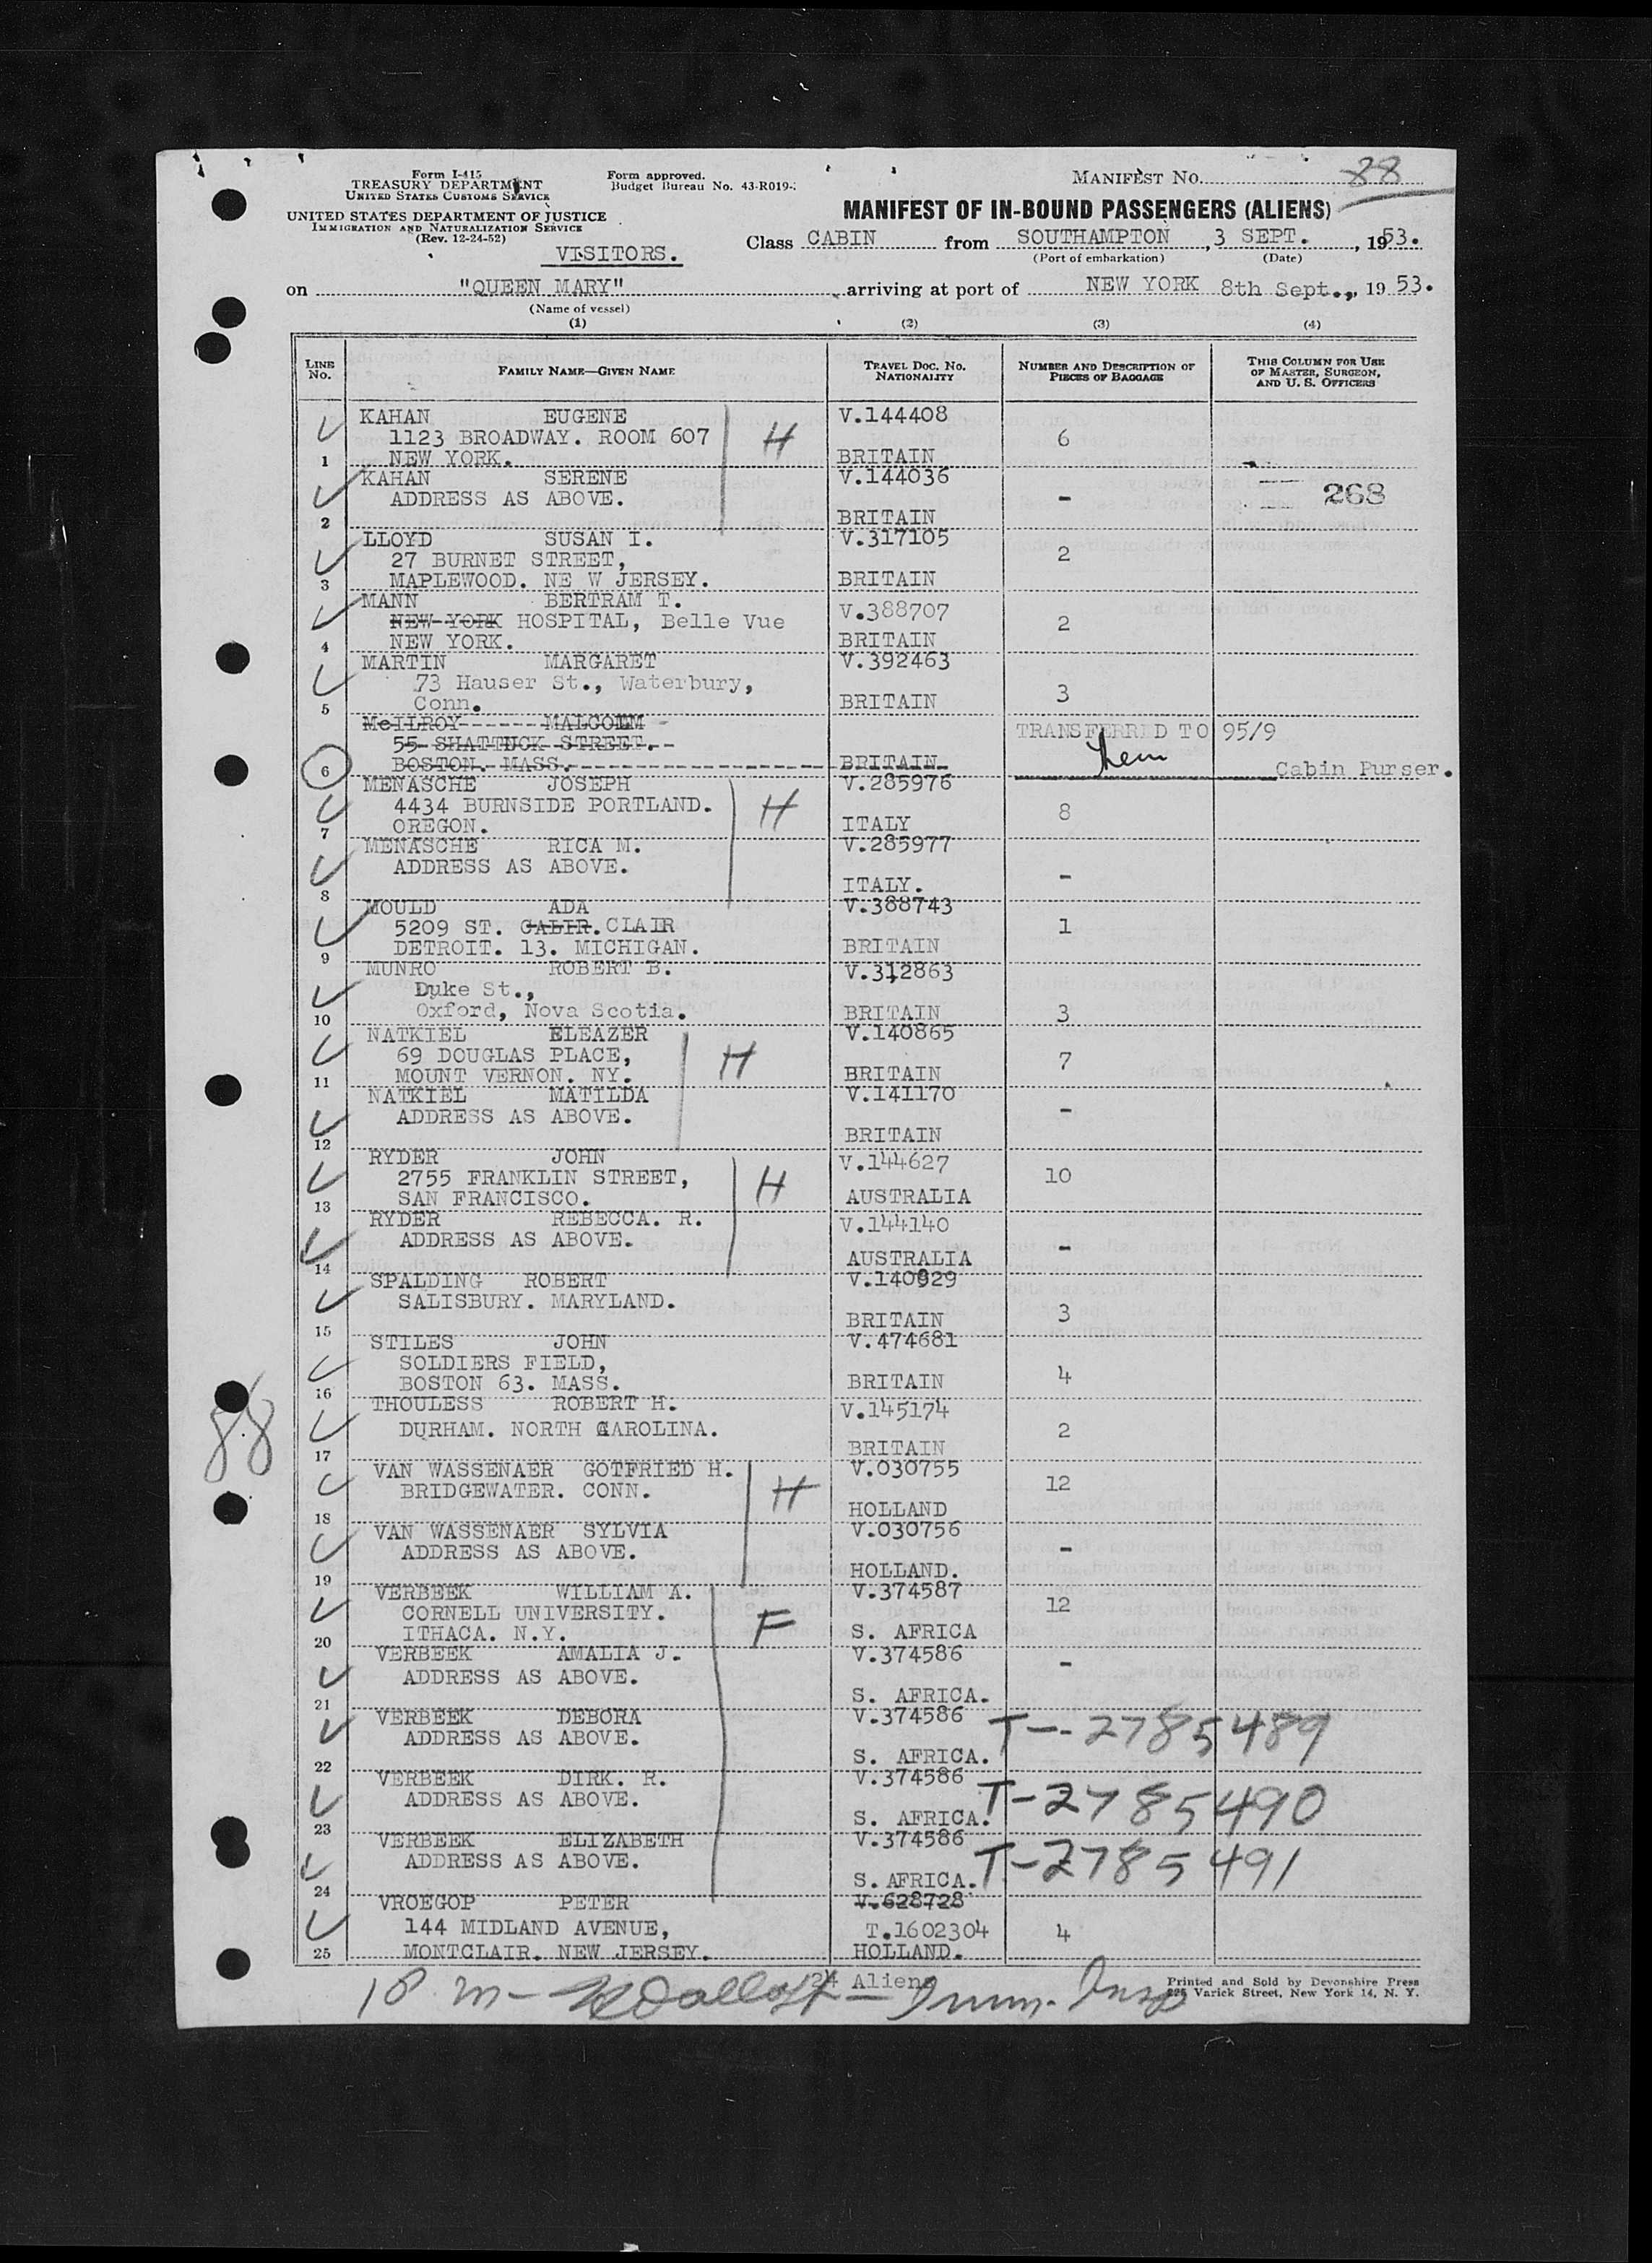 Form I-415
TREASURY DEPARTMENT
UNITED STATES CUSTOMS SERVICE
UNITED STATES DEPARTMENT OF JUSTICE
IMMIGRATION AND NATURALIZATION SERVICE
(Rev. 12-24-52)
Form approved.
Budget Bureau No. 43-R019-
MANIFEST No. 88
MANIFEST OF IN-BOUND PASSENGERS (ALIENS)
VISITORS.
Class CABIN from SOUTHAMPTON, 3 SEPT., 1953.
(Port of embarkation) (Date)
on "QUEEN MARY" arriving at port of NEW YORK 8th Sept., 1953.
(Name of vessel)
(1) (2) (3) (4)
LINE No. FAMILY NAME—GIVEN NAME TRAVEL DOC. NO. NATIONALITY NUMBER AND DESCRIPTION OF PIECES OF BAGGAGE THIS COLUMN FOR USE OF MASTER, SURGEON, AND U. S. OFFICERS
KAHAN EUGENE V.144408
1123 BROADWAY. ROOM 607 H 6
1 NEW YORK. BRITAIN
KAHAN SERENE V.144036
ADDRESS AS ABOVE. - 268
2 BRITAIN
LLOYD SUSAN I. V.317105
27 BURNET STREET, 2
3 MAPLEWOOD. NE W JERSEY. BRITAIN
MANN BERTRAM T. V.388707
NEW YORK HOSPITAL, Belle Vue 2
4 NEW YORK. BRITAIN
MARTIN MARGARET V.392463
73 Hauser St., Waterbury, 3
5 Conn. BRITAIN
McILROY MALCOLM TRANSFERRED TO 95/9
55 SHATTUCK STREET.
6 BOSTON. MASS. BRITAIN Cabin Purser.
MENASCHE JOSEPH V.285976
4434 BURNSIDE PORTLAND. H 8
7 OREGON. ITALY
MENASCHE RICA M. V.285977
ADDRESS AS ABOVE. -
8 ITALY.
MOULD ADA V.388743
5209 ST. CALIR. CLAIR 1
9 DETROIT. 13. MICHIGAN. BRITAIN
MUNRO ROBERT B. V.312863
Duke St.,
10 Oxford, Nova Scotia. BRITAIN 3
NATKIEL ELEAZER V.140865
69 DOUGLAS PLACE, H 7
11 MOUNT VERNON. NY. BRITAIN
NATKIEL MATILDA V.141170
ADDRESS AS ABOVE. -
12 BRITAIN
RYDER JOHN V.144627
2755 FRANKLIN STREET, H 10
13 SAN FRANCISCO. AUSTRALIA
RYDER REBECCA. R. V.144140
ADDRESS AS ABOVE. -
14 AUSTRALIA
SPALDING ROBERT V.140929
SALISBURY. MARYLAND. 3
15 BRITAIN
STILES JOHN V.474681
SOLDIERS FIELD, 4
16 BOSTON 63. MASS. BRITAIN
THOULESS ROBERT H. V.145174
DURHAM. NORTH CAROLINA. 2
17 BRITAIN
88
VAN WASSENAER GOTFRIED H. V.030755
BRIDGEWATER. CONN. H 12
18 HOLLAND
VAN WASSENAER SYLVIA V.030756
ADDRESS AS ABOVE. -
19 HOLLAND.
VERBEEK WILLIAM A. V.374587
CORNELL UNIVERSITY. F 12
20 ITHACA. N.Y. S. AFRICA
VERBEEK AMALIA J. V.374586
ADDRESS AS ABOVE. -
21 S. AFRICA.
VERBEEK DEBORA V.374586 T-2785489
ADDRESS AS ABOVE.
22 S. AFRICA.
VERBEEK DIRK. R. V.374586 T-2785490
ADDRESS AS ABOVE.
23 S. AFRICA.
VERBEEK ELIZABETH V.374586 T-2785491
ADDRESS AS ABOVE.
24 S. AFRICA.
VROEGOP PETER V.628728
144 MIDLAND AVENUE, T.1602304 4
25 MONTCLAIR. NEW JERSEY. HOLLAND.
24 Aliens
Imm. Insp
Printed and Sold by Devonshire Press
225 Varick Street, New York 14, N. Y.